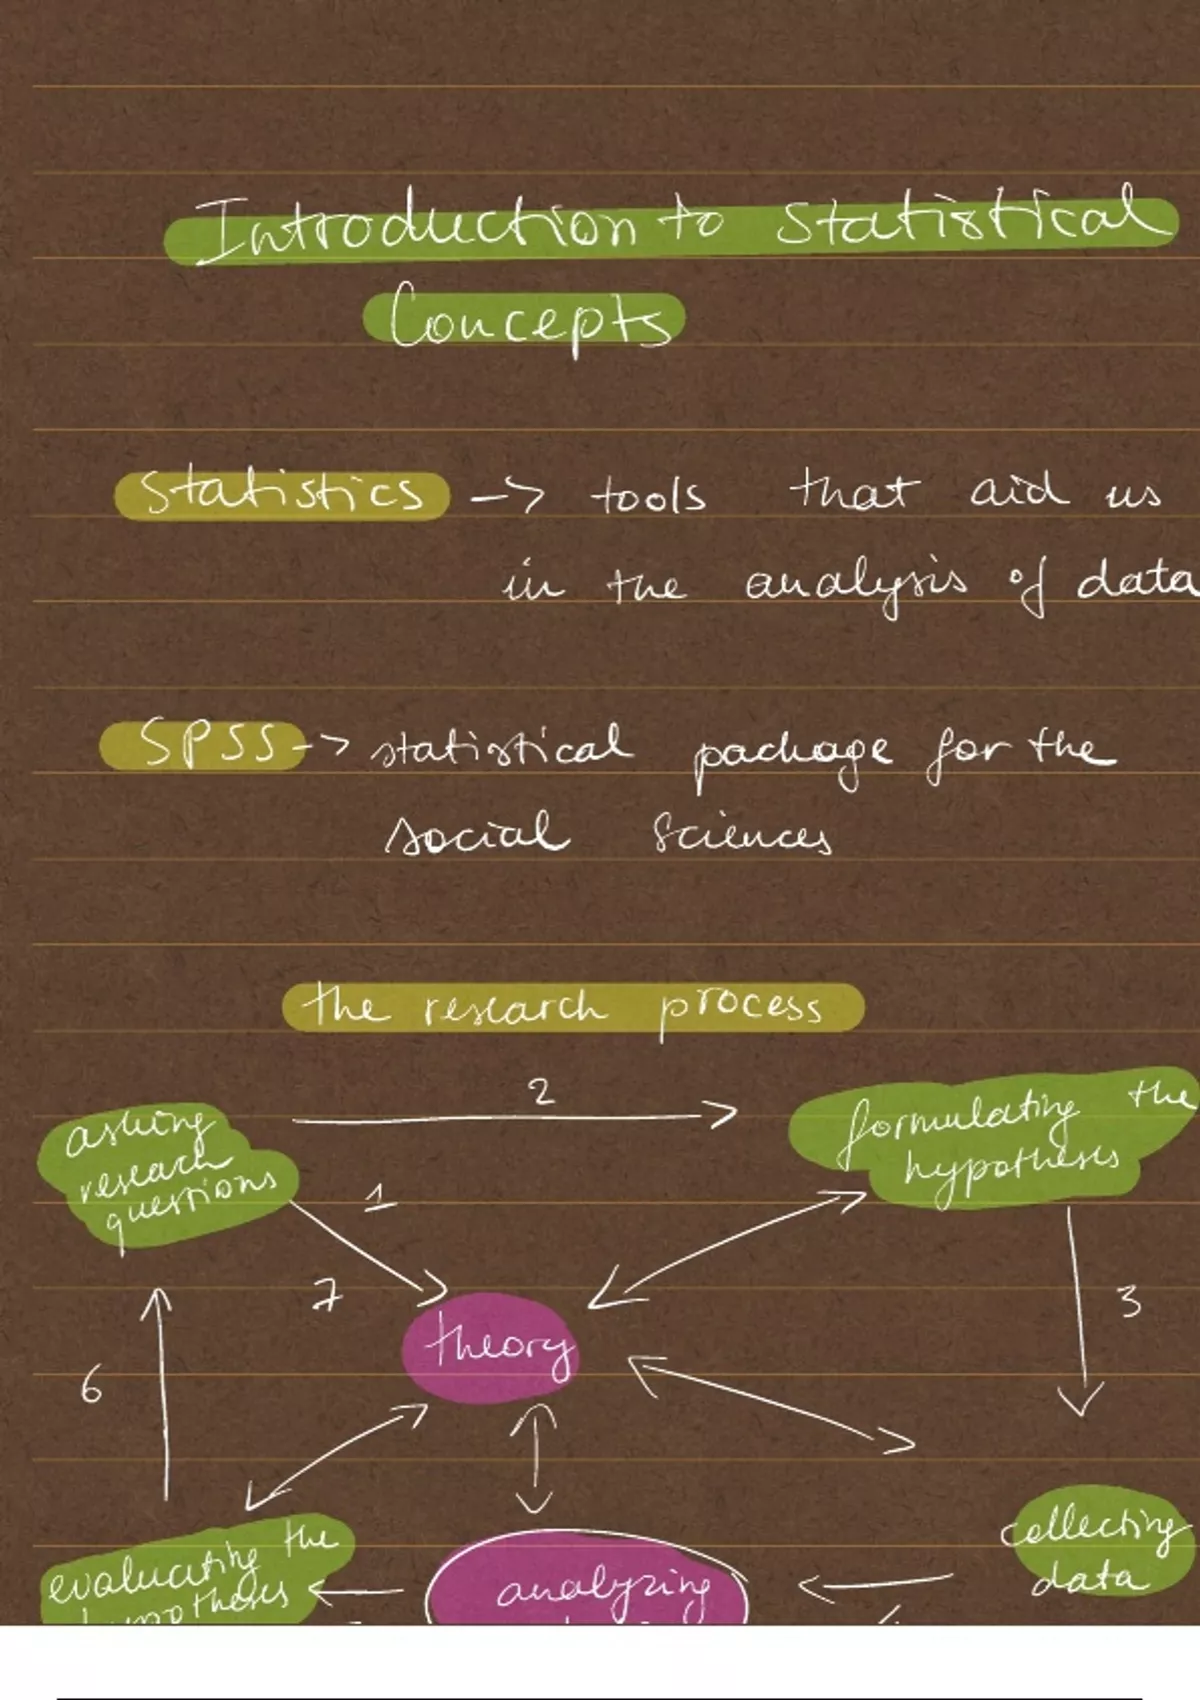 Introduction to Statistical
Concepts
Statistics -> tools that aid us
in the analysis of data
SPSS -> statistical package for the
social sciences
the research process
2
asking
research
questions
formulating the
hypothesis
1
7
3
theory
6
collecting
data
evaluating the
hypothesis
analyzing